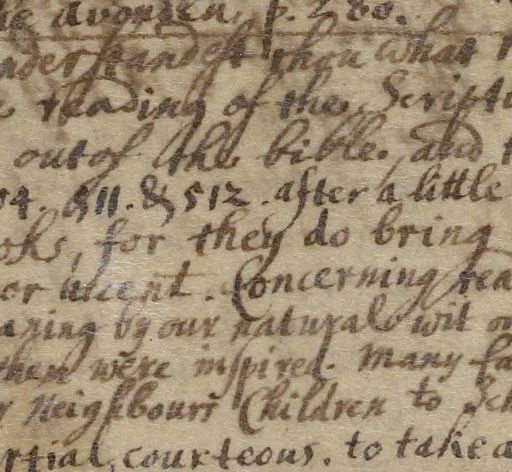 avoyded, p. 280.
understandest thou what
reading of the Scriptu
out of the bible, and
04. 511. & 512. after a little
oks, for they do bring
or accent. Concerning rea
aning by our natural wit or
when were inspired. Many fa
r Neighbours Children to Sch
rtial, courteous. to take a